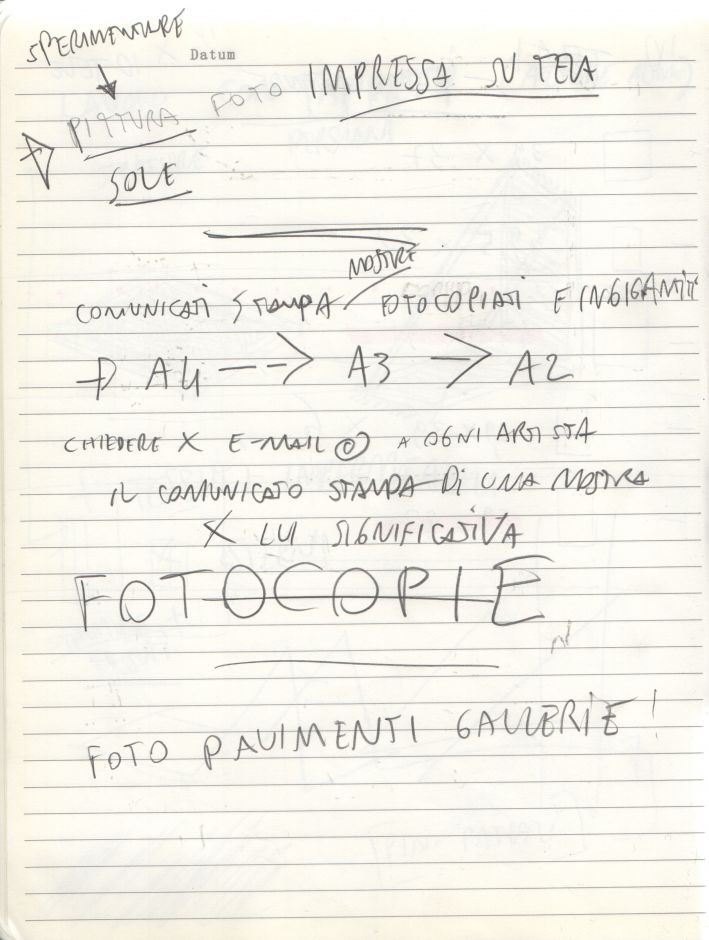 SPERIMENTARE
Datum
PITTURA FOTO IMPRESSA SU TELA
SOLE
MOSTRE
COMUNICATI STAMPA / FOTOCOPIATI E INGIGANTITI
→ A4 --> A3 → A2
CHIEDERE X E-MAIL @ A OGNI ARTISTA
IL COMUNICATO STAMPA DI UNA MOSTRA
X LUI SIGNIFICATIVA
FOTOCOPIE
FOTO PAVIMENTI GALLERIE!